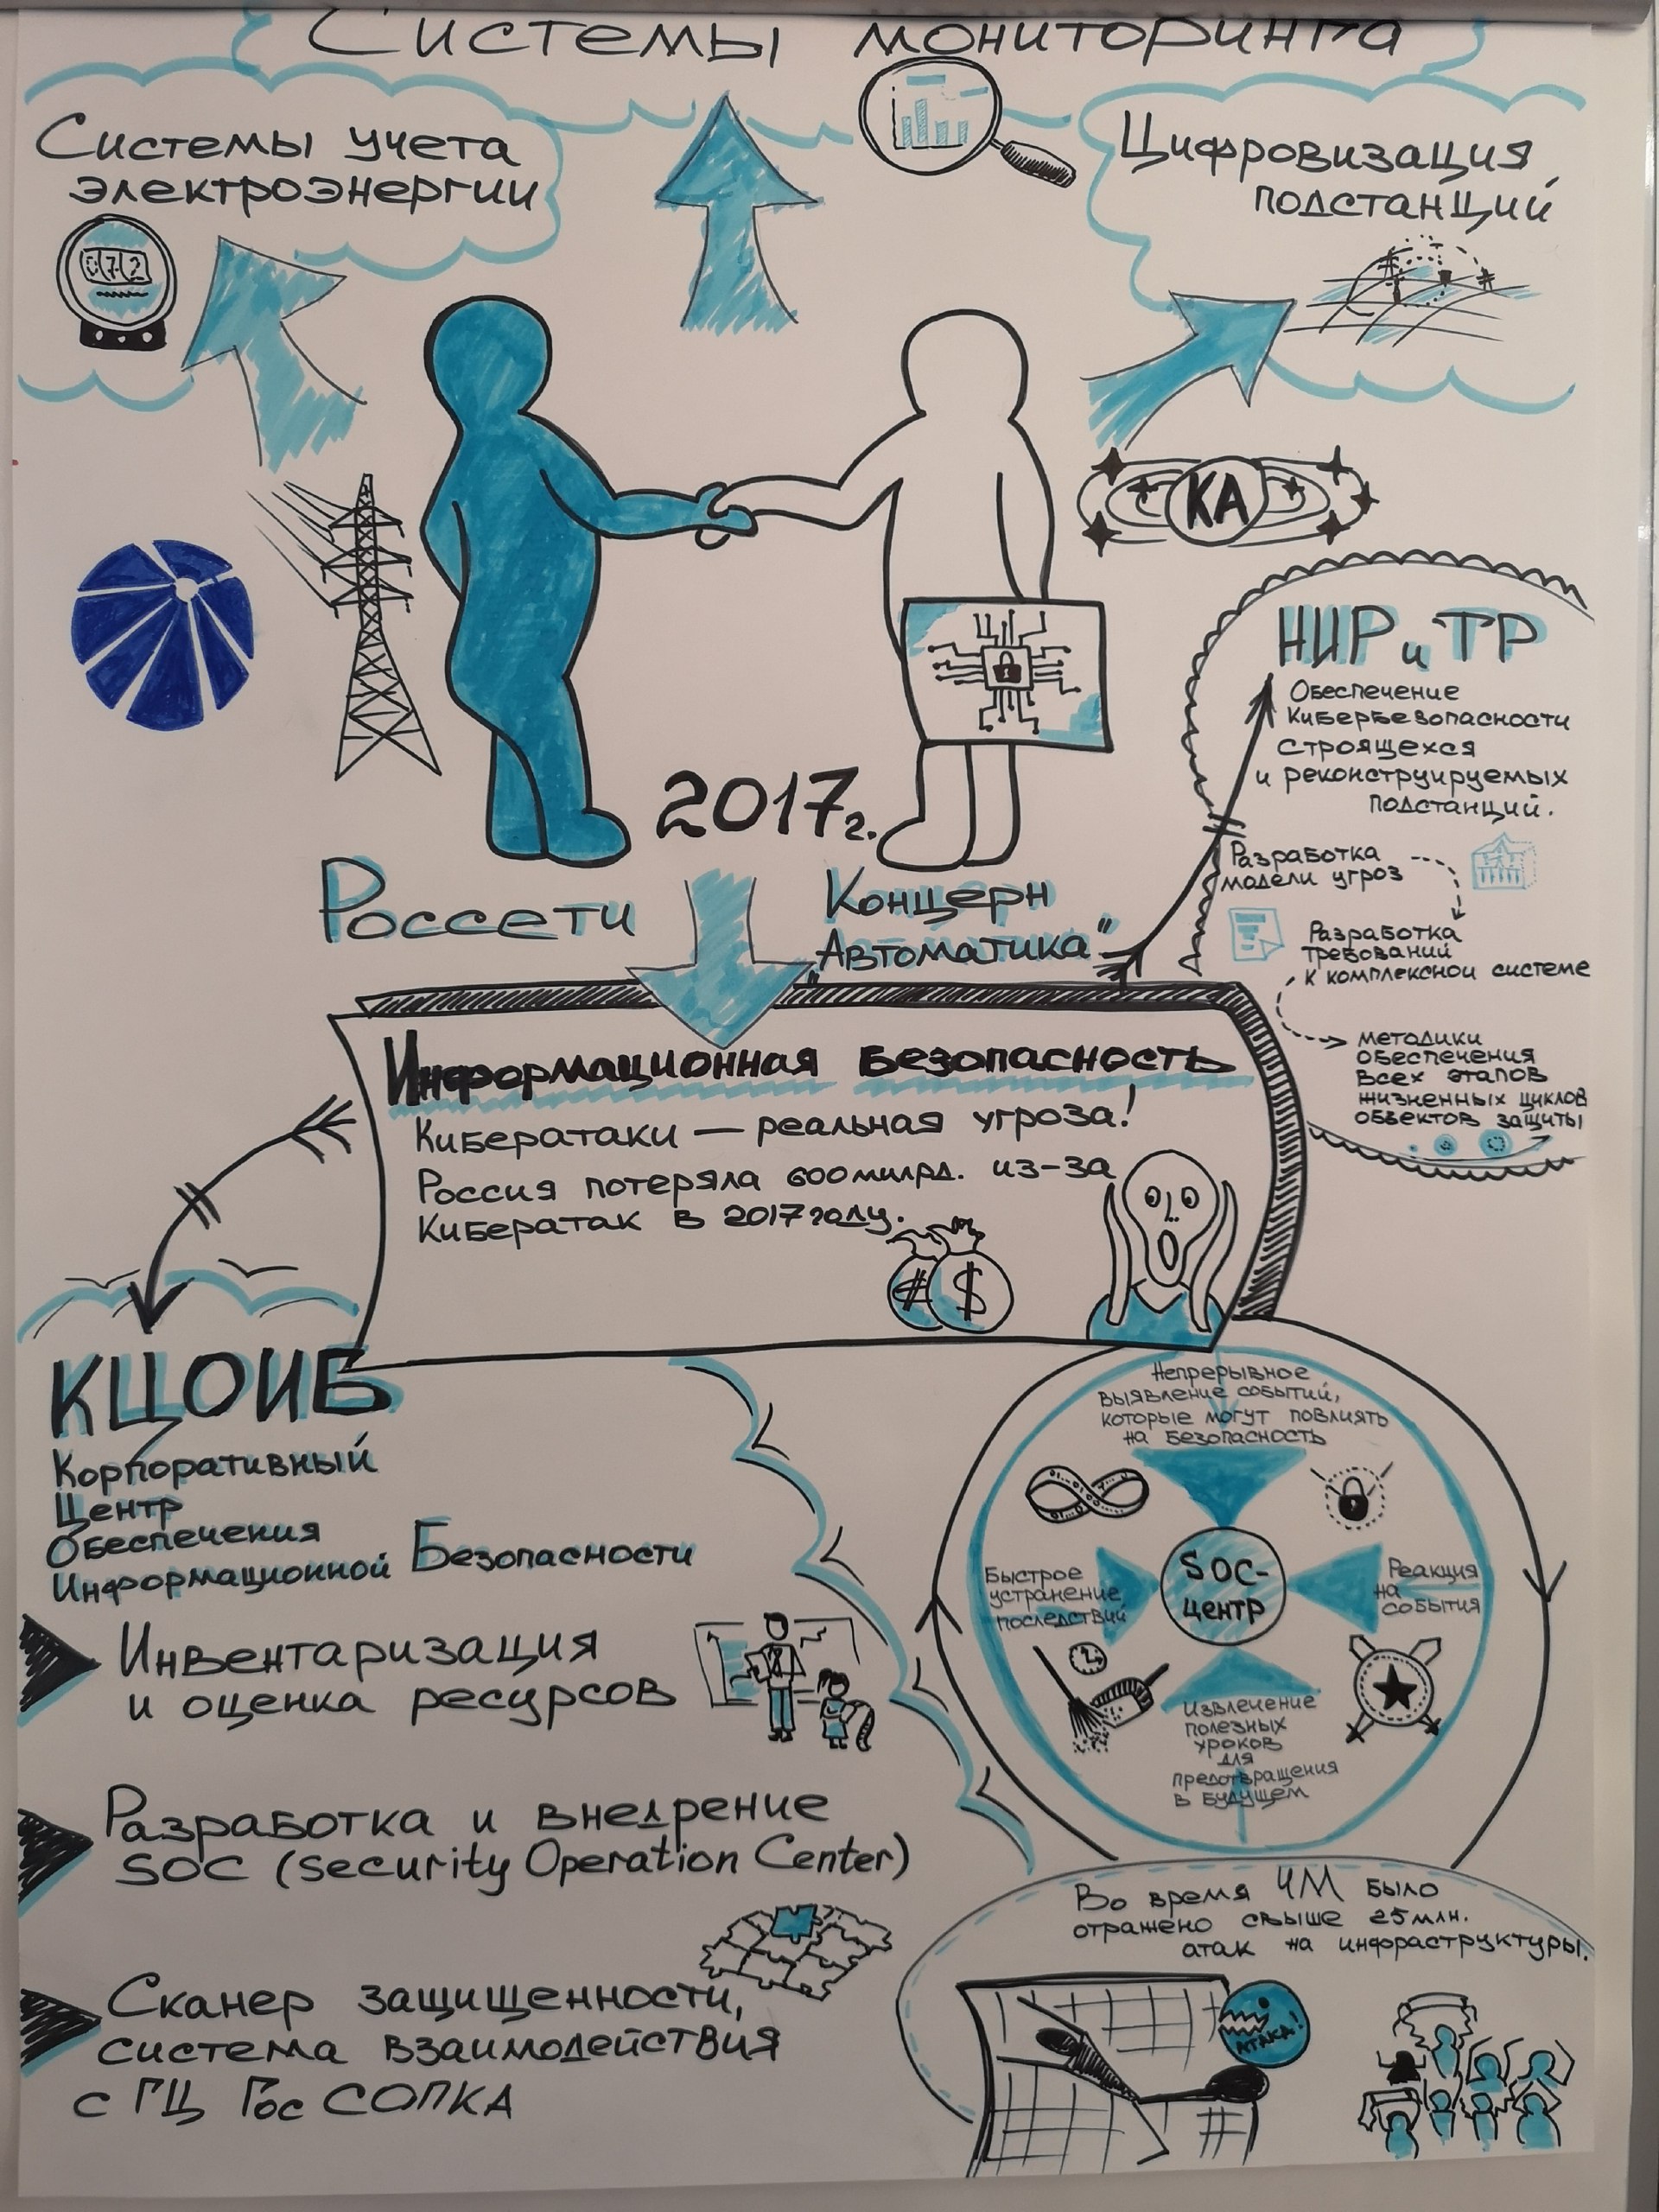 Системы мониторинга
Системы учета
электроэнергии
072
Цифровизация
подстанций
КА
2017г.
Россети
Концерн
"Автоматика"
НИР и ТР
Обеспечение
Кибербезопасности
строящехся
и реконструируемых
подстанций.
Разработка
модели угроз
Разработка
требований
к комплексной системе
методики
обеспечения
всех этапов
жизненных циклов
объектов защиты
Информационная Безопасность
Кибератаки — реальная угроза!
Россия потеряла 600 милрд. из-за
Кибератак в 2017 году.
$
КЦОИБ
Корпоративный
Центр
Обеспечения
Информационной Безопасности
Инвентаризация
и оценка ресурсов
Разработка и внедрение
SOC (Security Operation Center)
Сканер защищенности,
система взаимодействия
с ГЦ ГосСОПКА
Непрерывное
выявление событий,
которые могут повлиять
на безопасность
Быстрое
устранение
последствий
SOC-
центр
Реакция
на
события
Извлечение
полезных
уроков
для
предотвращения
в будущем
Во время ЧМ было
отражено свыше 25 млн.
атак на инфраструктуры.
АТАКА!